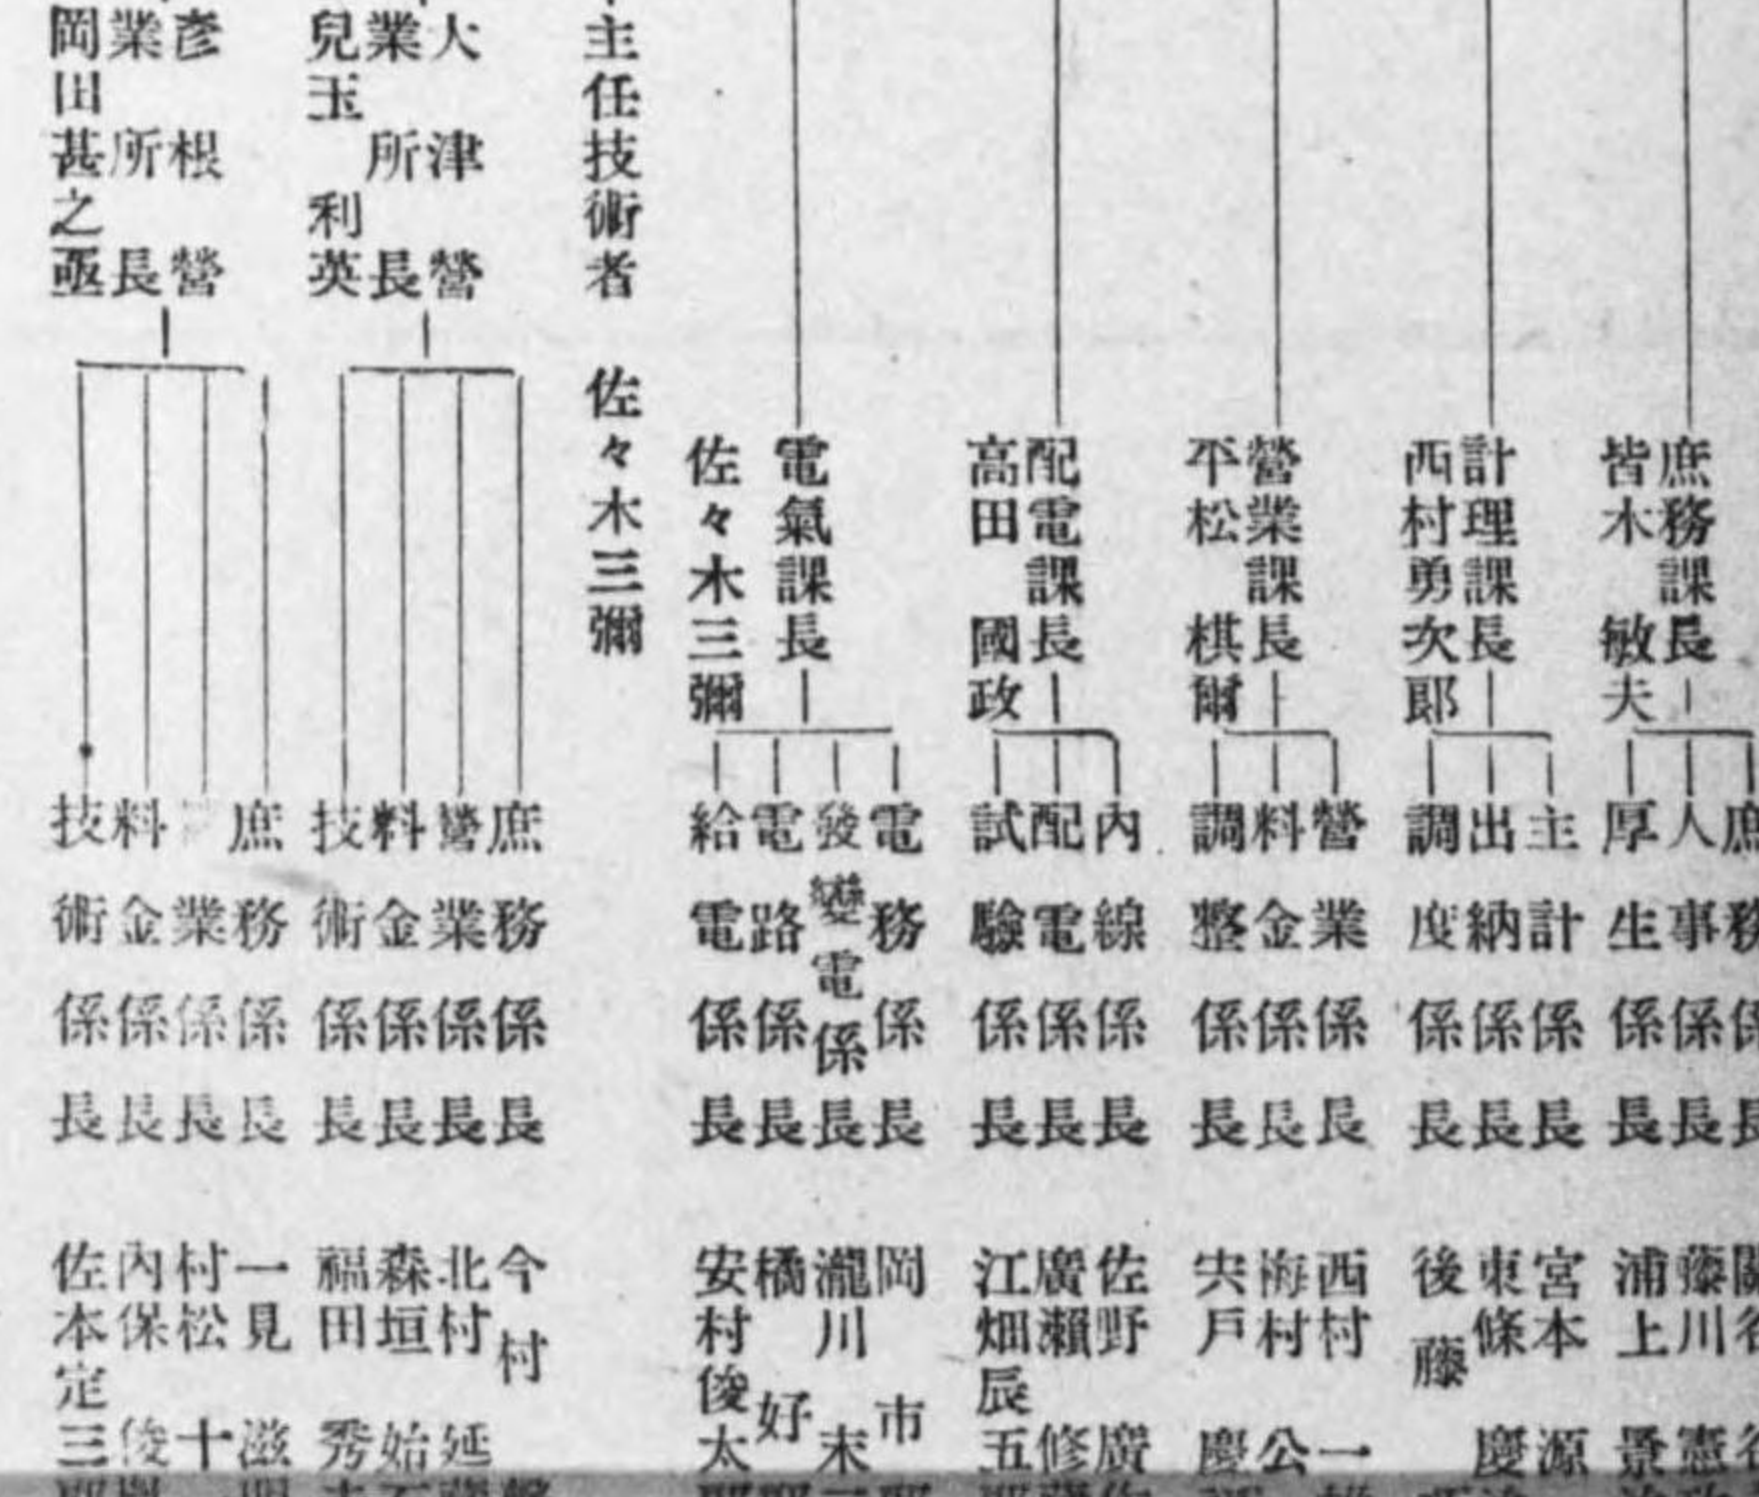 庶務課長
皆木敏夫
務係長
人事係長 藤川憲
厚生係長 浦上景
計理課長
西村勇次郎
主計係長 宮本源
出納係長 東條慶
調度係長 後藤
營業課長
平松棋爾
營業係長 西村一
料金係長 梅村公
調整係長 宍戸慶
配電課長
高田國政
內線係長 佐野廣
配電係長 廣瀨修
試驗係長 江畑辰五
電氣課長
佐々木三彌
電務係長 岡市
發變電係長 瀧川末
電路係長 橘好
給電係長 安村俊太
主任技術者 佐々木三彌
大津營
業所長
兒玉利英
庶務係長 今村
營業係長 北村延
料金係長 森垣始
技術係長 福田秀
彥根營
業所長
岡田甚之亟
庶務係長 一見滋
業係長 村松十
料金係長 內保俊
技術係長 佐本定三